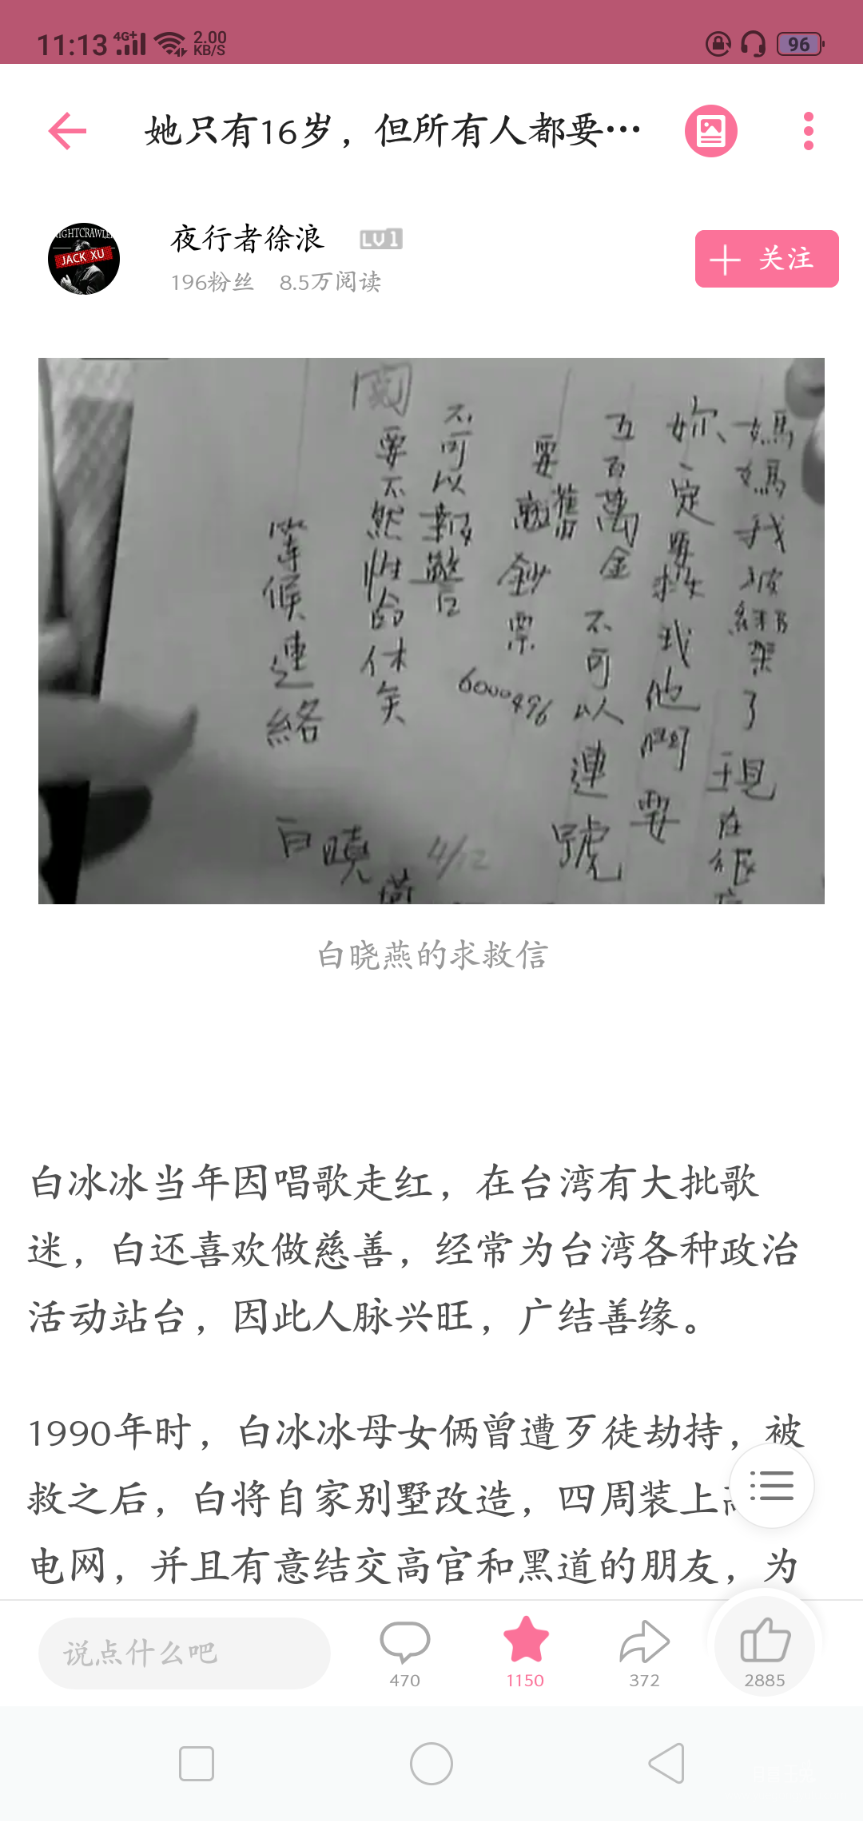 11:13 4G+ 2.00 KB/S 96
她只有16岁，但所有人都要…
NIGHTCRAWLE
JACK XU
夜行者徐浪 LV1
196粉丝 8.5万阅读
关注
媽媽我被綁架了現在很
妳一定要救我他們要
五百萬金不可以連號
要舊鈔票 6000496
不可以報警
要不然性命休矣
等候連絡
白曉燕 4/12
白晓燕的求救信
白冰冰当年因唱歌走红，在台湾有大批歌
迷，白还喜欢做慈善，经常为台湾各种政治
活动站台，因此人脉兴旺，广结善缘。
1990年时，白冰冰母女俩曾遭歹徒劫持，被
救之后，白将自家别墅改造，四周装上高
电网，并且有意结交高官和黑道的朋友，为
说点什么吧
470 1150 372 2885